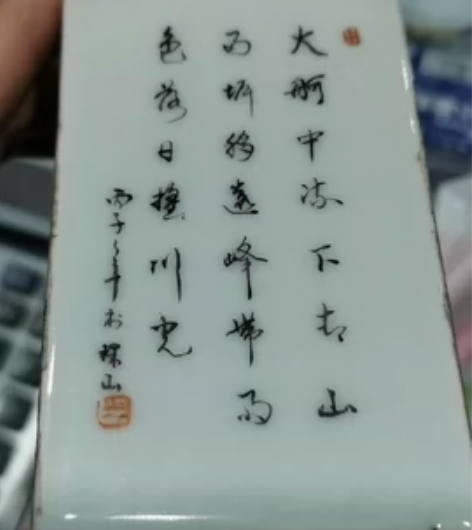 大舸中流下青山
两岸移遠峰帶雨
色落日搖川光
丙子年於珠山